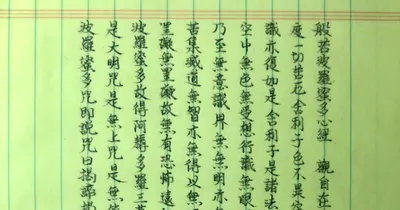 般若波羅蜜多心經 觀自在
度一切苦厄舍利子色不異空
識亦復如是舍利子是諸法
空中無色無受想行識無眼
乃至無意識界無無明亦
苦集滅道無智亦無得以無
罣礙無罣礙故無有恐怖遠
波羅蜜多故得阿耨多羅三
是大明咒是無上咒是無
波羅蜜多咒即說咒曰揭諦